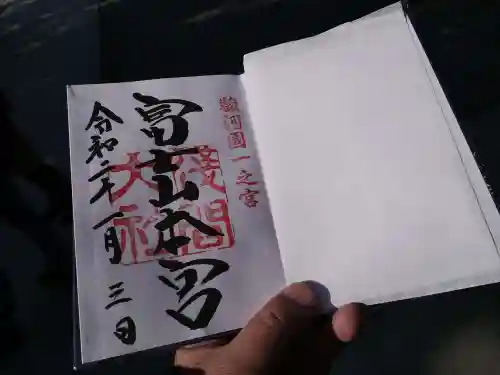 駿河國一之宮
富士山本宮
浅間
大社
令和二年一月三日